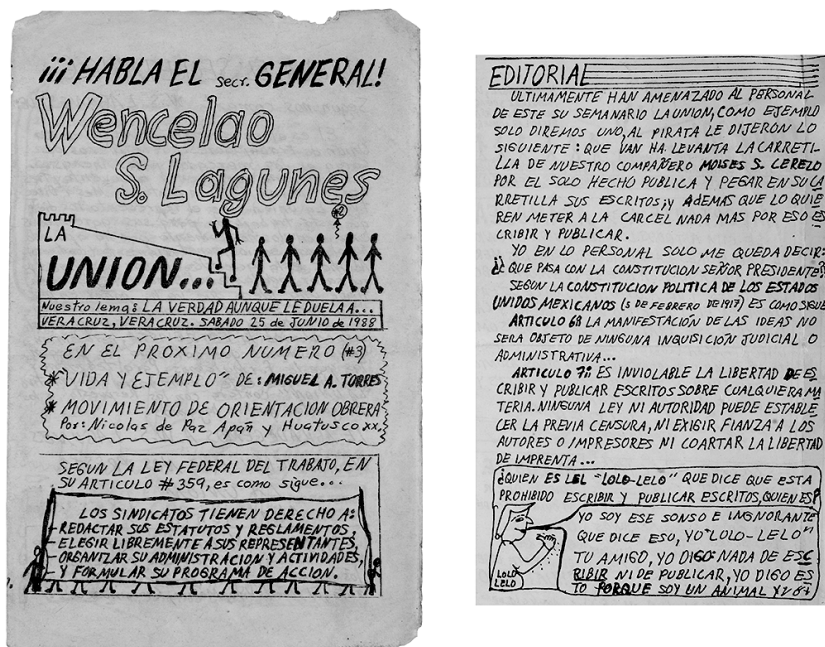 ¡¡¡ HABLA EL Secr. GENERAL!
Wencelao
S. Lagunes
#2
LA
UNION...
Nuestro lema: LA VERDAD AUNQUE LE DUELA A...
VERACRUZ, VERACRUZ. SABADO 25 de JUNIO de 1988
EN EL PROXIMO NUMERO (#3)
* "VIDA Y EJEMPLO" DE: MIGUEL A. TORRES
* MOVIMIENTO DE ORIENTACION OBRERA
Por: Nicolas de Paz Apañ y Huatusco xx.
SEGUN LA LEY FEDERAL DEL TRABAJO, EN
SU ARTICULO # 359, es como sigue...
LOS SINDICATOS TIENEN DERECHO A:
REDACTAR SUS ESTATUTOS Y REGLAMENTOS,
ELEGIR LIBREMENTE A SUS REPRESENTANTES,
ORGANIZAR SU ADMINISTRACION Y ACTIVIDADES,
Y FORMULAR SU PROGRAMA DE ACCION.
EDITORIAL
ULTIMAMENTE HAN AMENAZADO AL PERSONAL
DE ESTE SU SEMANARIO LA UNION, COMO EJEMPLO
SOLO DIREMOS UNO, AL PIRATA LE DIJERON LO
SIGUIENTE: QUE VAN HA LEVANTA LA CARRETI-
LLA DE NUESTRO COMPAÑERO MOISES S. CEREZO
POR EL SOLO HECHO PUBLICA Y PEGAR EN SU CA
RRETILLA SUS ESCRITOS ¡Y ADEMAS QUE LO QUIE
REN METER A LA CARCEL NADA MAS POR ESO ES
CRIBIR Y PUBLICAR.
YO EN LO PERSONAL SOLO ME QUEDA DECIR:
¿QUE PASA CON LA CONSTITUCION SEÑOR PRESIDENTE?
SEGUN LA CONSTITUCION POLITICA DE LOS ESTADOS
UNIDOS MEXICANOS (5 DE FEBRERO DE 1917) ES COMO SIGUE
ARTICULO 6º LA MANIFESTACIÓN DE LAS IDEAS NO
SERA OBJETO DE NINGUNA INQUISICIÓN JUDICIAL O
ADMINISTRATIVA...
ARTICULO 7º: ES INVIOLABLE LA LIBERTAD DE ES
CRIBIR Y PUBLICAR ESCRITOS SOBRE CUALQUIERA MA
TERIA. NINGUNA LEY NI AUTORIDAD PUEDE ESTABLE
CER LA PREVIA CENSURA, NI EXIGIR FIANZA A LOS
AUTORES O IMPRESORES NI COARTAR LA LIBERTAD
DE IMPRENTA...
¿QUIEN ES LEL "LOLO-LELO" QUE DICE QUE ESTA
PROHIBIDO ESCRIBIR Y PUBLICAR ESCRITOS, QUIEN ES?
YO SOY ESE SONSO E INGNORANTE
QUE DICE ESO, YO "LOLO-LELO"
TU AMIGO, YO DIGO NADA DE ESC
RIBIR NI DE PUBLICAR, YO DIGO ES
TO PORQUE SOY UN ANIMAL
LOLO
LELO